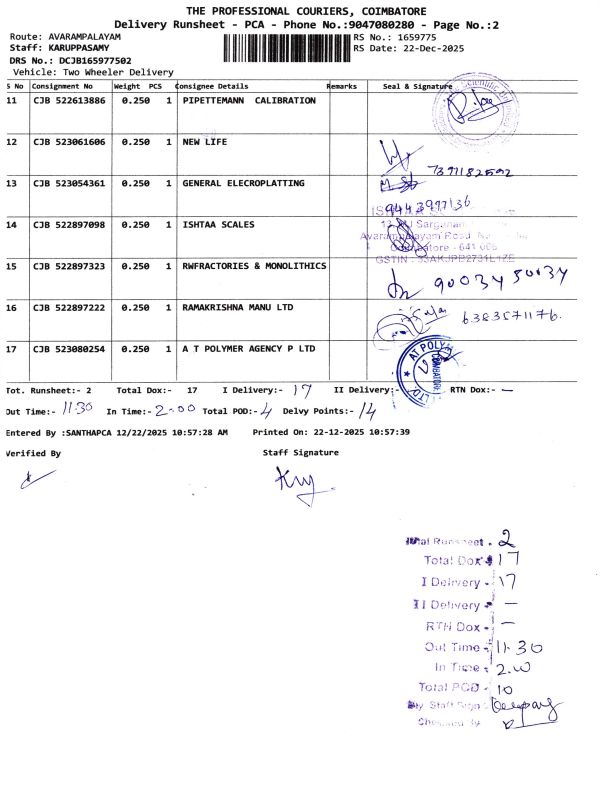 THE PROFESSIONAL COURIERS, COIMBATORE
Delivery Runsheet - PCA - Phone No.:9047080280 - Page No.:2
Route: AVARAMPALAYAM RS No.: 1659775
Staff: KARUPPASAMY RS Date: 22-Dec-2025
DRS No.: DCJB165977502
Vehicle: Two Wheeler Delivery
S No Consignment No Weight PCS Consignee Details Remarks Seal & Signature
11 CJB 522613886 0.250 1 PIPETTEMANN CALIBRATION
12 CJB 523061606 0.250 1 NEW LIFE
7397182592
13 CJB 523054361 0.250 1 GENERAL ELECROPLATTING
9443997136
14 CJB 522897098 0.250 1 ISHTAA SCALES
641 006
GSTIN :
15 CJB 522897323 0.250 1 RWFRACTORIES & MONOLITHICS
9003450034
16 CJB 522897222 0.250 1 RAMAKRISHNA MANU LTD
6383571176.
17 CJB 523080254 0.250 1 A T POLYMER AGENCY P LTD
AT POLYM
LTD
Tot. Runsheet:- 2 Total Dox:- 17 I Delivery:- 17 II Delivery:- RTN Dox:- —
Out Time:- 11-30 In Time:- 2-00 Total POD:- 4 Delvy Points:- 14
Entered By :SANTHAPCA 12/22/2025 10:57:28 AM Printed On: 22-12-2025 10:57:39
Verified By Staff Signature
Total Runsheet - 2
Total Dox - 17
I Delivery - 17
II Delivery - —
RTN Dox - —
Out Time - 11-30
In Time - 2.00
Total POD - 10
Staff Sign
Checked By